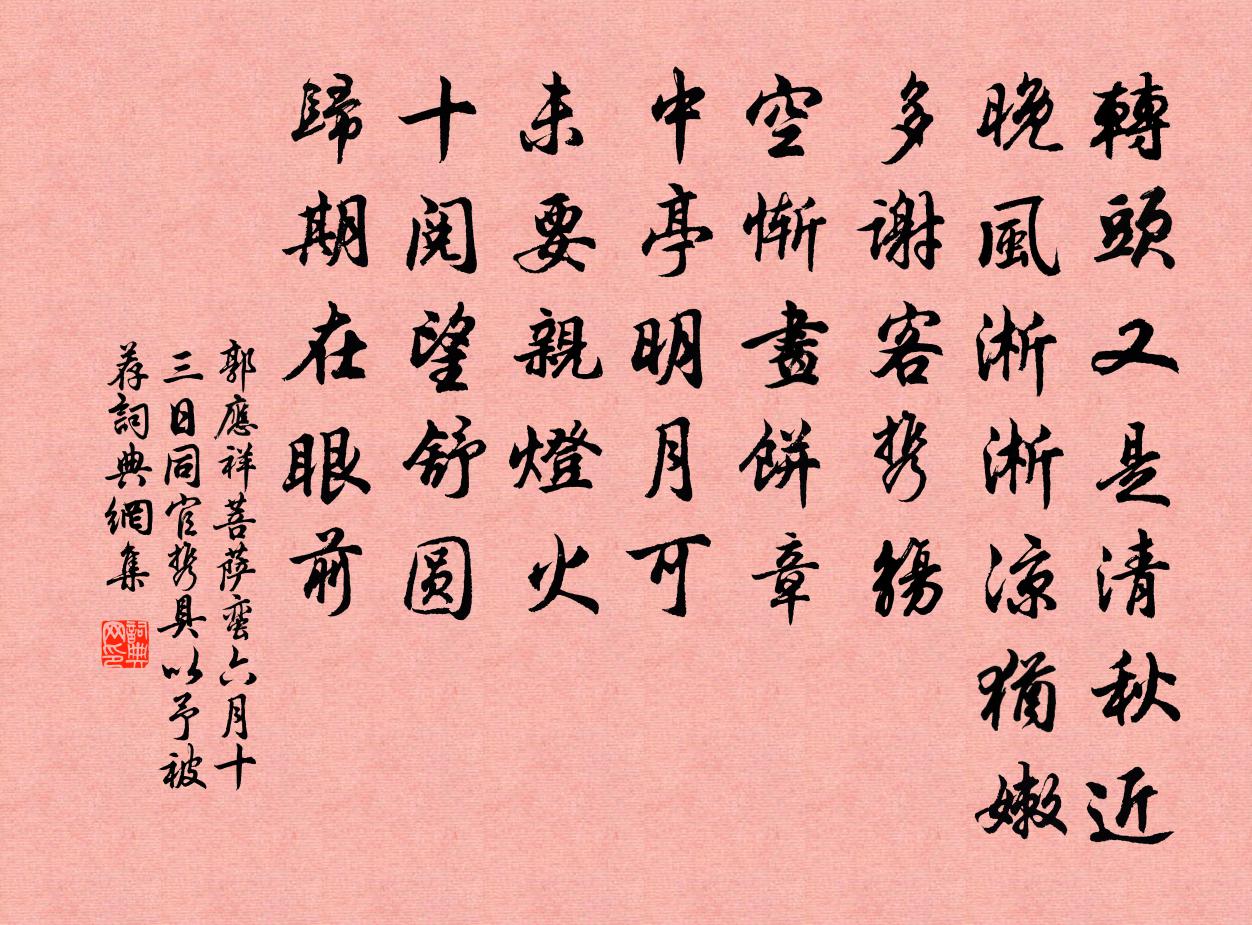 轉頭又是清秋近
晚風淅淅凉猶嫩
多謝客携觴
空慚畫餅章
中亭明月可
未要親燈火
十閱望舒圓
歸期在眼前
郭應祥菩薩蛮六月十
三日同官携具以予被
荐詞典網集
詞典网印